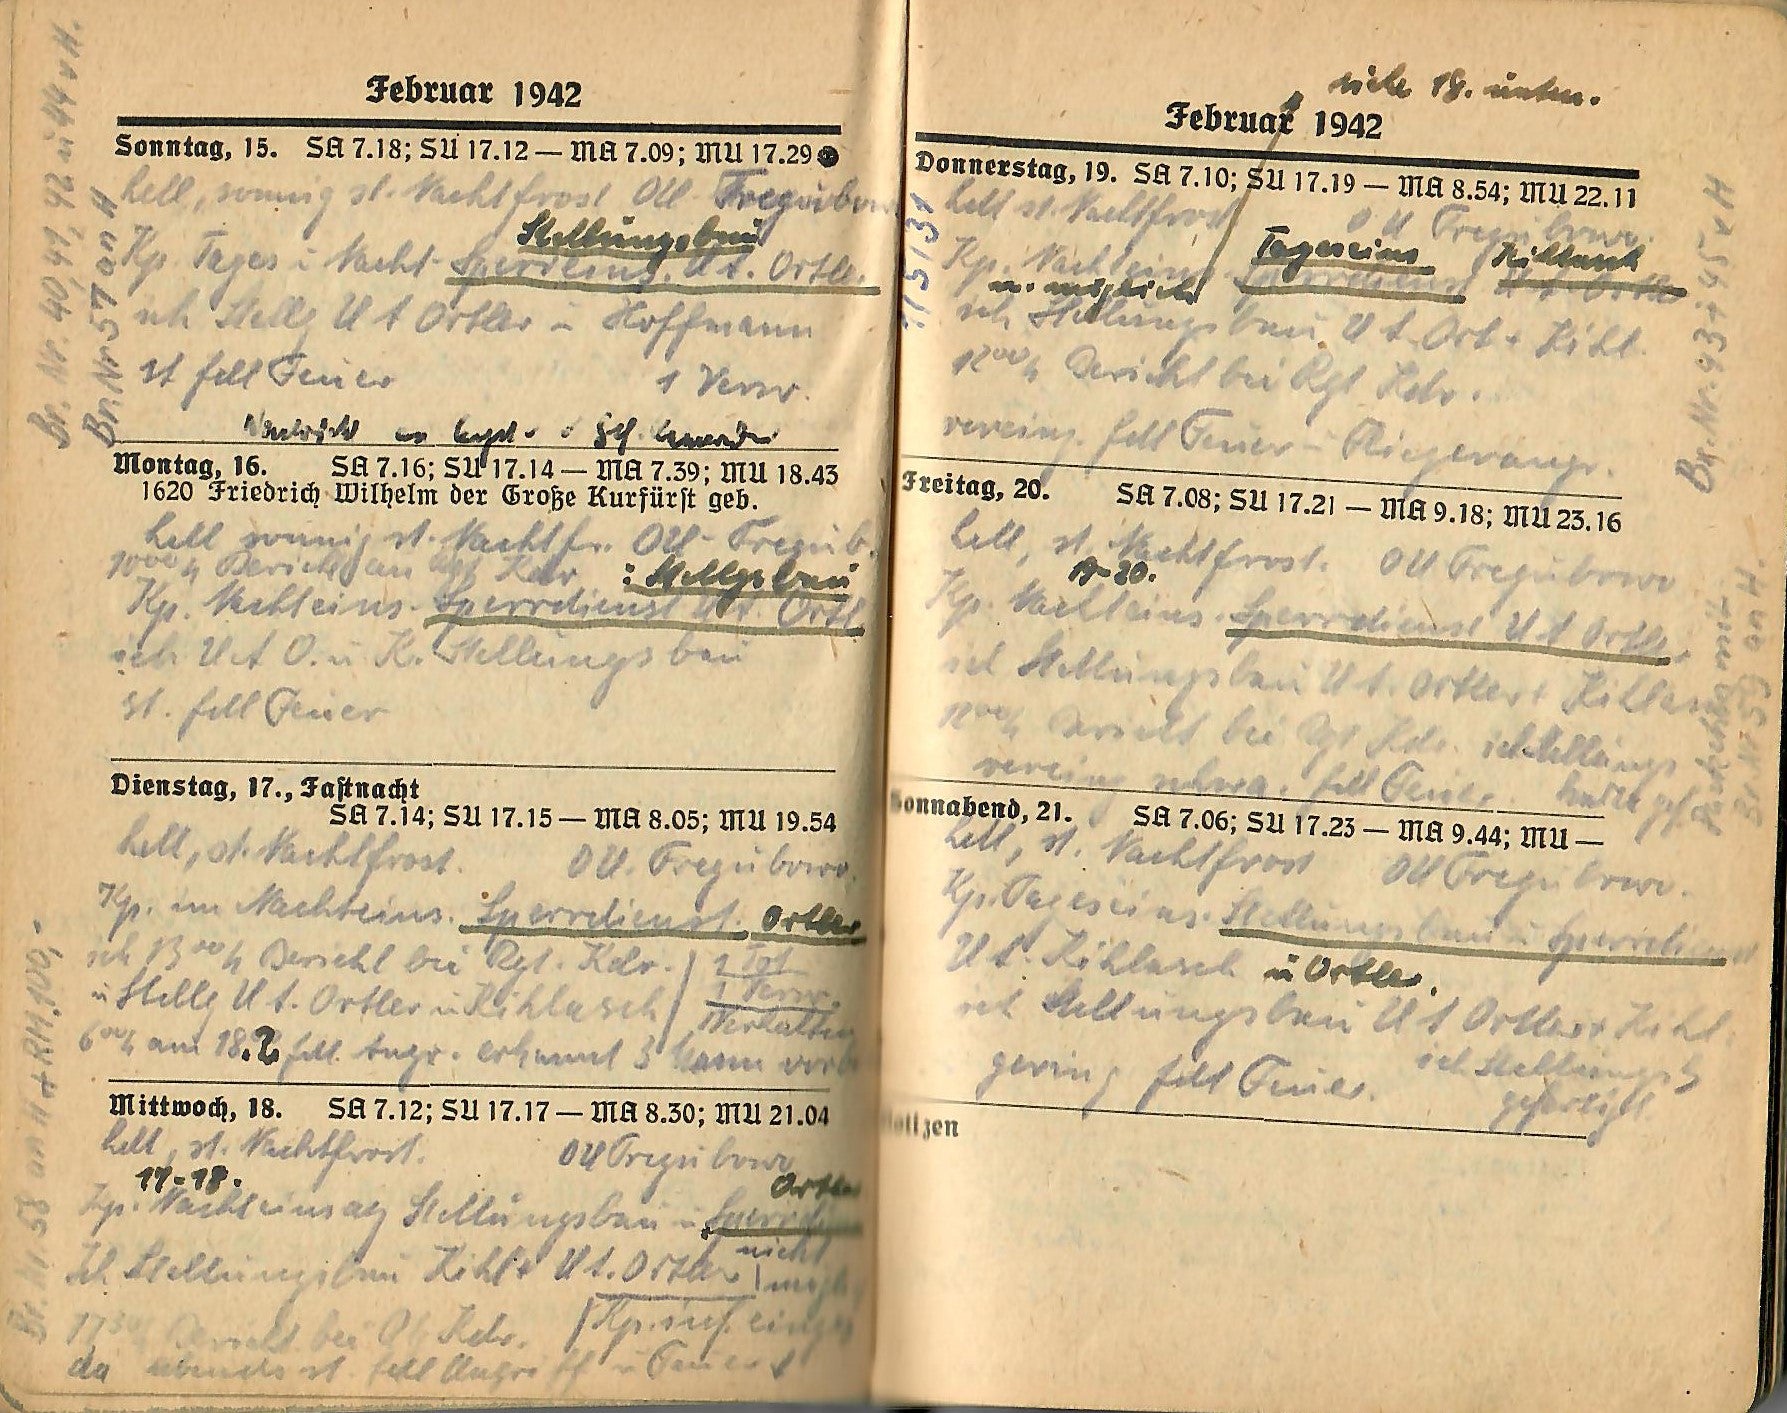 Februar 1942
Sonntag, 15. SA 7.18; SU 17.12 — MA 7.09; MU 17.29
hell, sonnig st. Nachtfrost OU Tregubowo
Stellungsbau
Kp. Tages u Nacht- Sperrdienst. U t. Ortler.
ich Stellg U t Ortler u Hoffmann
st fdl Feuer 1 Verw.
Montag, 16. SA 7.16; SU 17.14 — MA 7.39; MU 18.43
1620 Friedrich Wilhelm der Große Kurfürst geb.
hell sonnig st. Nachtfr. OU Tregub.
10⁰⁰h Bericht an Rgt Kdr : Stellgsbau
Kp. Nachteins. Sperrdienst U t. Ortl
ich U t O. u K. Stellungsbau
st. fdl Feuer
Dienstag, 17., Fastnacht
SA 7.14; SU 17.15 — MA 8.05; MU 19.54
hell, st. Nachtfrost. OU. Tregubowo.
Kp. im Nachteins. Sperrdienst. Ortler
ich 13⁰⁰h Bericht bei Rgt. Kdr. 1 Tot
u Stellg U t. Ortler u Kihlasch 1 Verw.
6⁰⁰h am 18.2. fdl. Angr. erkannt 3 Mann
Mittwoch, 18. SA 7.12; SU 17.17 — MA 8.30; MU 21.04
hell, st. Nachtfrost. OU Tregubowo
17-18. Ortler
Kp. Nachteins Stellungsbau u Sperrd
Ich Stellungsbau Kihl + U t. Ortler nicht
Bericht bei Kdr. Kp.
da abends st. fdl Angriff u Feuer
Br. Nr. 40, 41, 42 u 44 v H.
Br. Nr 57 an H
Br. Nr. 58 an H + RM. 100,-
siehe 18. unten.
Februar 1942
Donnerstag, 19. SA 7.10; SU 17.19 — MA 8.54; MU 22.11
hell st. Nachtfrost OU Tregubowo.
Tageseins Kihlasch
Kp. Nachteins Sperrdienst U t. Ortler
n. möglich
ich Stellungsbau U t. Ort + Kihl.
12⁰⁰h Bericht bei Rgt Kdr.
vereinz. fdl Feuer – Fliegerangr.
Freitag, 20. SA 7.08; SU 17.21 — MA 9.18; MU 23.16
hell, st. Nachtfrost. OU Tregubowo
19-20.
Kp. Nachteins. Sperrdienst U t Ortler.
ich Stellungsbau U t. Ortler + Kihlasch
12⁰⁰h Bericht bei Rgt Kdr. ich Stellungs
vereinz fdl Feuer.
Sonnabend, 21. SA 7.06; SU 17.23 — MA 9.44; MU —
hell, st. Nachtfrost OU Tregubowo.
Kp. Tageseins. Stellungsbau u Sperrdienst
U t. Kihlasch u Ortler.
ich Stellungsbau U t Ortler + Kihl.
gering fdl Feuer. ich Stellungsb
gefertigt
Notizen
Br. Nr. 43 + 45 v H
Br Nr 59 an H.